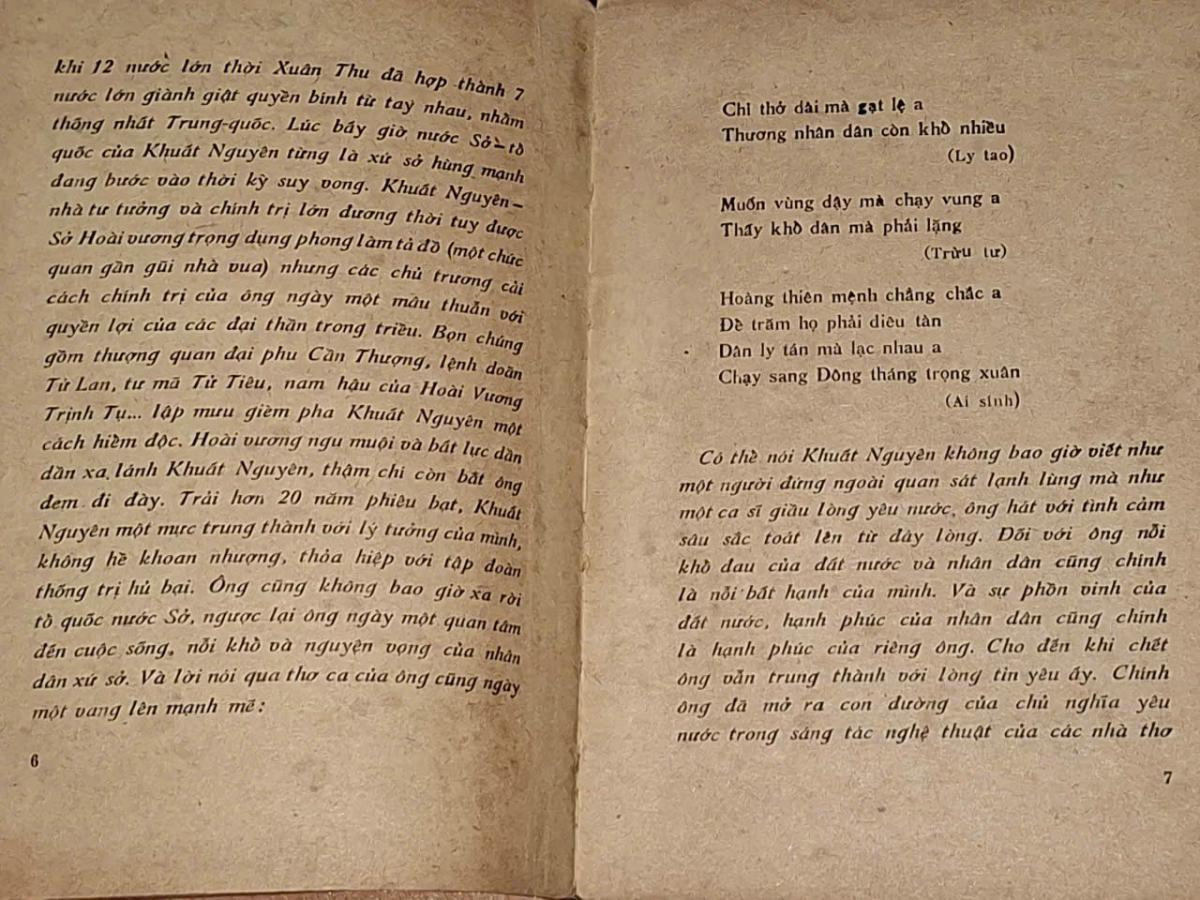 khi 12 nước lớn thời Xuân Thu đã hợp thành 7
nước lớn giành giật quyền bính từ tay nhau, nhằm
thống nhất Trung-quốc. Lúc bấy giờ nước Sở – tổ
quốc của Khuất Nguyên từng là xứ sở hùng mạnh
đang bước vào thời kỳ suy vong. Khuất Nguyên –
nhà tư tưởng và chính trị lớn đương thời tuy được
Sở Hoài vương trọng dụng phong làm tả đồ (một chức
quan gần gũi nhà vua) nhưng các chủ trương cải
cách chính trị của ông ngày một mâu thuẫn với
quyền lợi của các đại thần trong triều. Bọn chúng
gồm thượng quan đại phu Cần Thượng, lệnh doãn
Tử Lan, tư mã Tử Tiêu, nam hậu của Hoài Vương
Trịnh Tụ... lập mưu gièm pha Khuất Nguyên một
cách hiểm độc. Hoài vương ngu muội và bất lực dần
dần xa lánh Khuất Nguyên, thậm chi còn bắt ông
đem đi đày. Trải hơn 20 năm phiêu bạt, Khuất
Nguyên một mực trung thành với lý tưởng của mình,
không hề khoan nhượng, thỏa hiệp với tập đoàn
thống trị hủ bại. Ông cũng không bao giờ xa rời
tổ quốc nước Sở, ngược lại ông ngày một quan tâm
đến cuộc sống, nỗi khổ và nguyện vọng của nhân
dân xứ sở. Và lời nói qua thơ ca của ông cũng ngày
một vang lên mạnh mẽ :
6
Chỉ thở dài mà gạt lệ a
Thương nhân dân còn khổ nhiều
(Ly tao)
Muốn vùng dậy mà chạy vung a
Thấy khổ dân mà phải lặng
(Trừu tư)
Hoàng thiên mệnh chẳng chắc a
Để trăm họ phải diêu tàn
Dân ly tán mà lạc nhau a
Chạy sang Đông tháng trọng xuân
(Ai sính)
Có thể nói Khuất Nguyên không bao giờ viết như
một người đứng ngoài quan sát lạnh lùng mà như
một ca sĩ giầu lòng yêu nước, ông hát với tình cảm
sâu sắc toát lên từ đáy lòng. Đối với ông nỗi
khổ đau của đất nước và nhân dân cũng chính
là nỗi bất hạnh của mình. Và sự phồn vinh của
đất nước, hạnh phúc của nhân dân cũng chính
là hạnh phúc của riêng ông. Cho đến khi chết
ông vẫn trung thành với lòng tin yêu ấy. Chính
ông đã mở ra con đường của chủ nghĩa yêu
nước trong sáng tác nghệ thuật của các nhà thơ
7